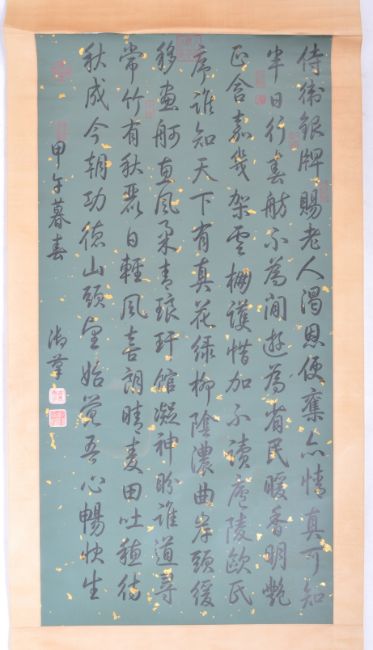 侍衛銀牌賜老人渴恩便奪亦情真可知
半日行春舫不為閒遊為省民暖香明艷
正含嘉幾架雲棚護惜加不讀廬陵歐氏
序誰知天下有真花綠柳陰濃曲岸頭緩
移畫舸直風柔青琅玕館凝神盼誰道尋
常竹有秋麗日輕風喜朗晴麥田吐穗待
秋成今朝功德山頭望始覺吾心暢快生
甲午暮春 御筆